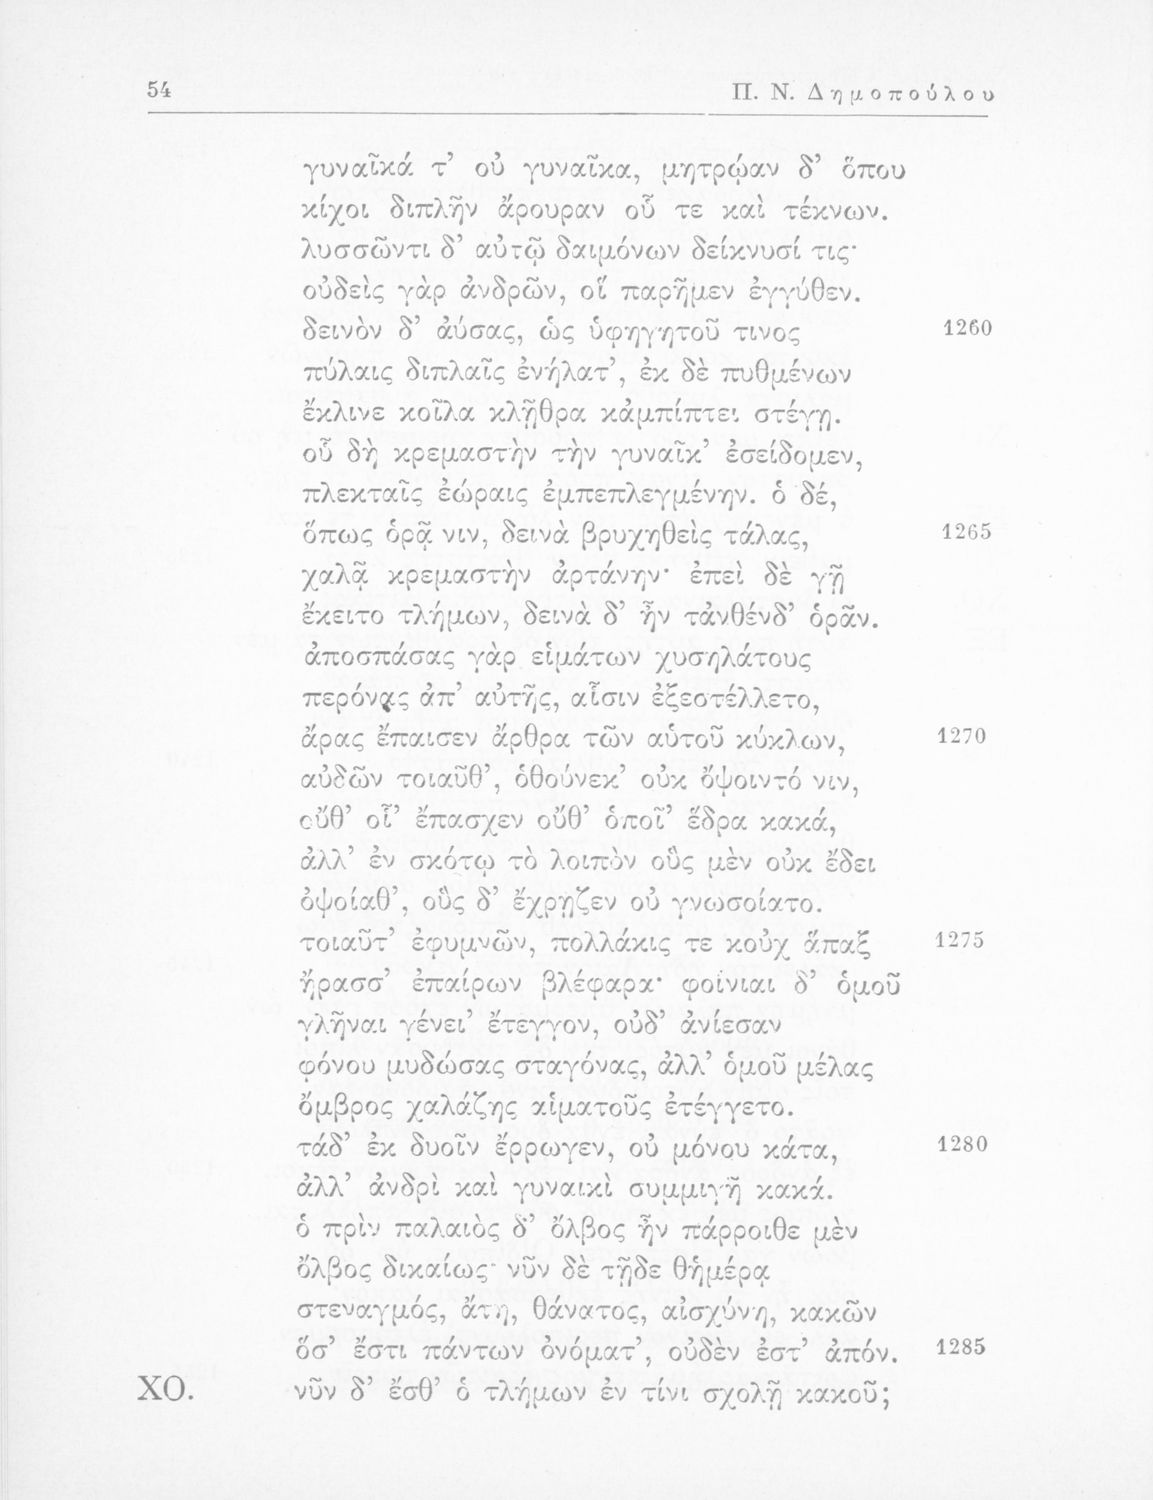 54
Π. Ν. Δημοπούλου
γυναῖκά τ’ οὐ γυναῖκα, μητρῴαν δ’ ὅπου
κίχοι διπλῆν ἄρουραν οὗ τε καὶ τέκνων.
λυσσῶντι δ’ αὐτῷ δαιμόνων δείκνυσί τις·
οὐδεὶς γὰρ ἀνδρῶν, οἳ παρῆμεν ἐγγύθεν.
δεινὸν δ’ ἀύσας, ὡς ὑφηγητοῦ τινος 1260
πύλαις διπλαῖς ἐνήλατ’, ἐκ δὲ πυθμένων
ἔκλινε κοῖλα κλῇθρα κἀμπίπτει στέγῃ.
οὗ δὴ κρεμαστὴν τὴν γυναῖκ’ ἐσείδομεν,
πλεκταῖς ἐώραις ἐμπεπλεγμένην. ὁ δέ,
ὅπως ὁρᾷ νιν, δεινὰ βρυχηθεὶς τάλας, 1265
χαλᾷ κρεμαστὴν ἀρτάνην· ἐπεὶ δὲ γῇ
ἔκειτο τλήμων, δεινὰ δ’ ἦν τἀνθένδ’ ὁρᾶν.
ἀποσπάσας γὰρ εἱμάτων χυσηλάτους
περόνας ἀπ’ αὐτῆς, αἷσιν ἐξεστέλλετο,
ἄρας ἔπαισεν ἄρθρα τῶν αὑτοῦ κύκλων, 1270
αὐδῶν τοιαῦθ’, ὁθούνεκ’ οὐκ ὄψοιντό νιν,
οὔθ’ οἷ’ ἔπασχεν οὔθ’ ὁποῖ’ ἔδρα κακά,
ἀλλ’ ἐν σκότῳ τὸ λοιπὸν οὓς μὲν οὐκ ἔδει
ὀψοίαθ’, οὓς δ’ ἔχρῃζεν οὐ γνωσοίατο.
τοιαῦτ’ ἐφυμνῶν, πολλάκις τε κοὐχ ἅπαξ 1275
ἤρασσ’ ἐπαίρων βλέφαρα· φοίνιαι δ’ ὁμοῦ
γλῆναι γένει’ ἔτεγγον, οὐδ’ ἀνίεσαν
φόνου μυδώσας σταγόνας, ἀλλ’ ὁμοῦ μέλας
ὄμβρος χαλάζης αἱματοῦς ἐτέγγετο.
τάδ’ ἐκ δυοῖν ἔρρωγεν, οὐ μόνου κάτα, 1280
ἀλλ’ ἀνδρὶ καὶ γυναικὶ συμμιγῆ κακά.
ὁ πρὶν παλαιὸς δ’ ὄλβος ἦν πάρροιθε μὲν
ὄλβος δικαίως· νῦν δὲ τῇδε θἠμέρᾳ
στεναγμός, ἄτη, θάνατος, αἰσχύνη, κακῶν
ὅσ’ ἔστι πάντων ὀνόματ’, οὐδὲν ἐστ’ ἀπόν. 1285
ΧΟ. νῦν δ’ ἔσθ’ ὁ τλήμων ἐν τίνι σχολῇ κακοῦ;